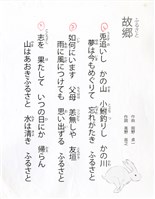 ふるさと
故郷
作詞 高野 辰之
作曲 岡野 貞一
兎追いし かの山
小鮒釣りし かの川
夢は今もめぐりて 忘れがたき ふるさと
如何にいます 父母 恙無しや 友垣
雨に風につけても 思い出ずる ふるさと
志を 果たして いつの日にか 帰らん
山はあおきふるさと 水は清き ふるさと